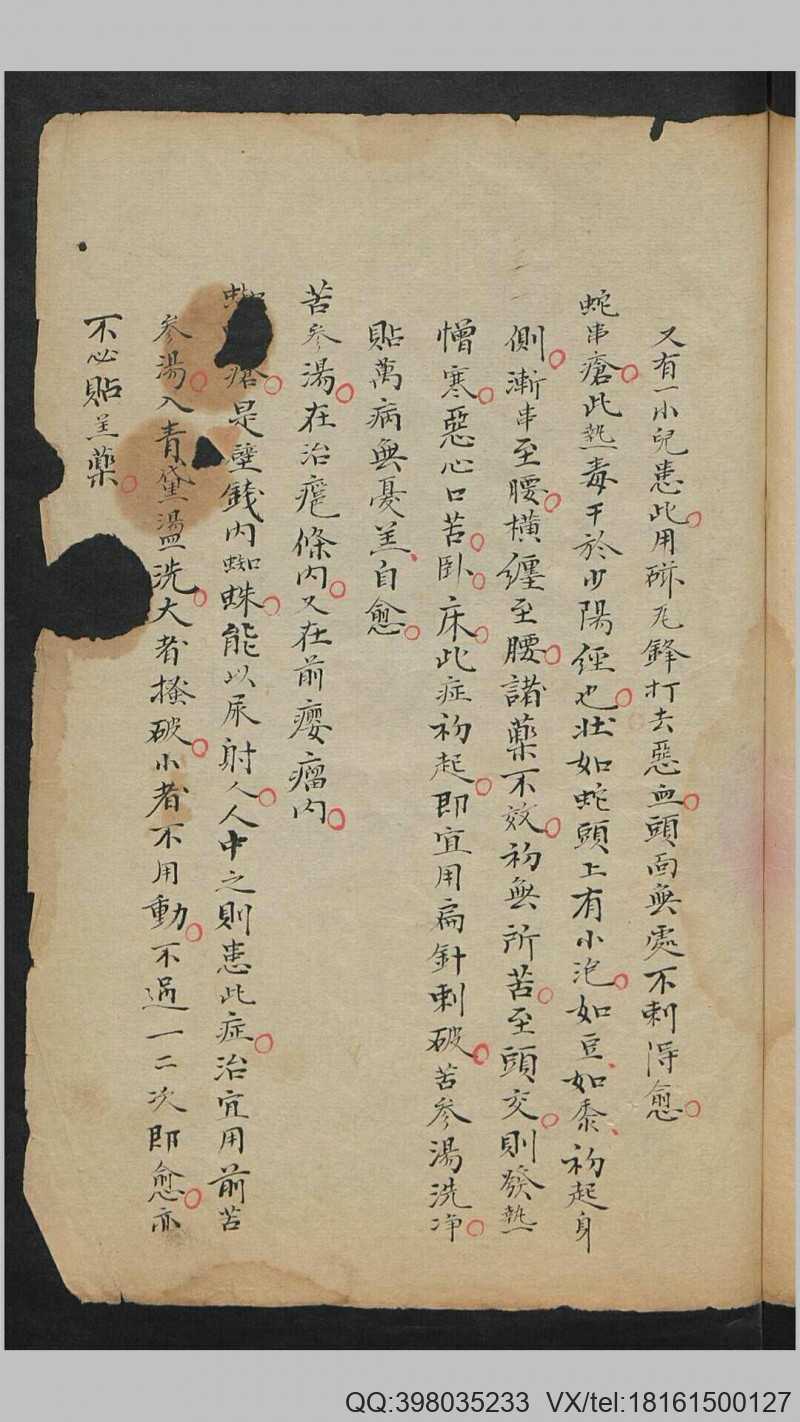 又有一小兒患此用磁瓦鋒打去惡血頭面無處不刺得愈
蛇串瘡此熱毒干於少陽經也狀如蛇頭上有小泡如豆如黍初起身
側漸串至腰橫纏至腰諸藥不效初無所苦至頭交則發熱
憎寒惡心口苦臥床此症初起即宜用扁針刺破苦參湯洗净
貼萬病無憂羔自愈
苦參湯在治瘧條內又在前癭瘤内
蜘瘡是壁錢内蜘蛛能以尿射人人中之則患此症治宜用前苦
參湯入青黛盪洗大者搔破小者不用動不過一二次即愈亦
不必貼羔藥
QQ:398035233 VX/tel:18161500127